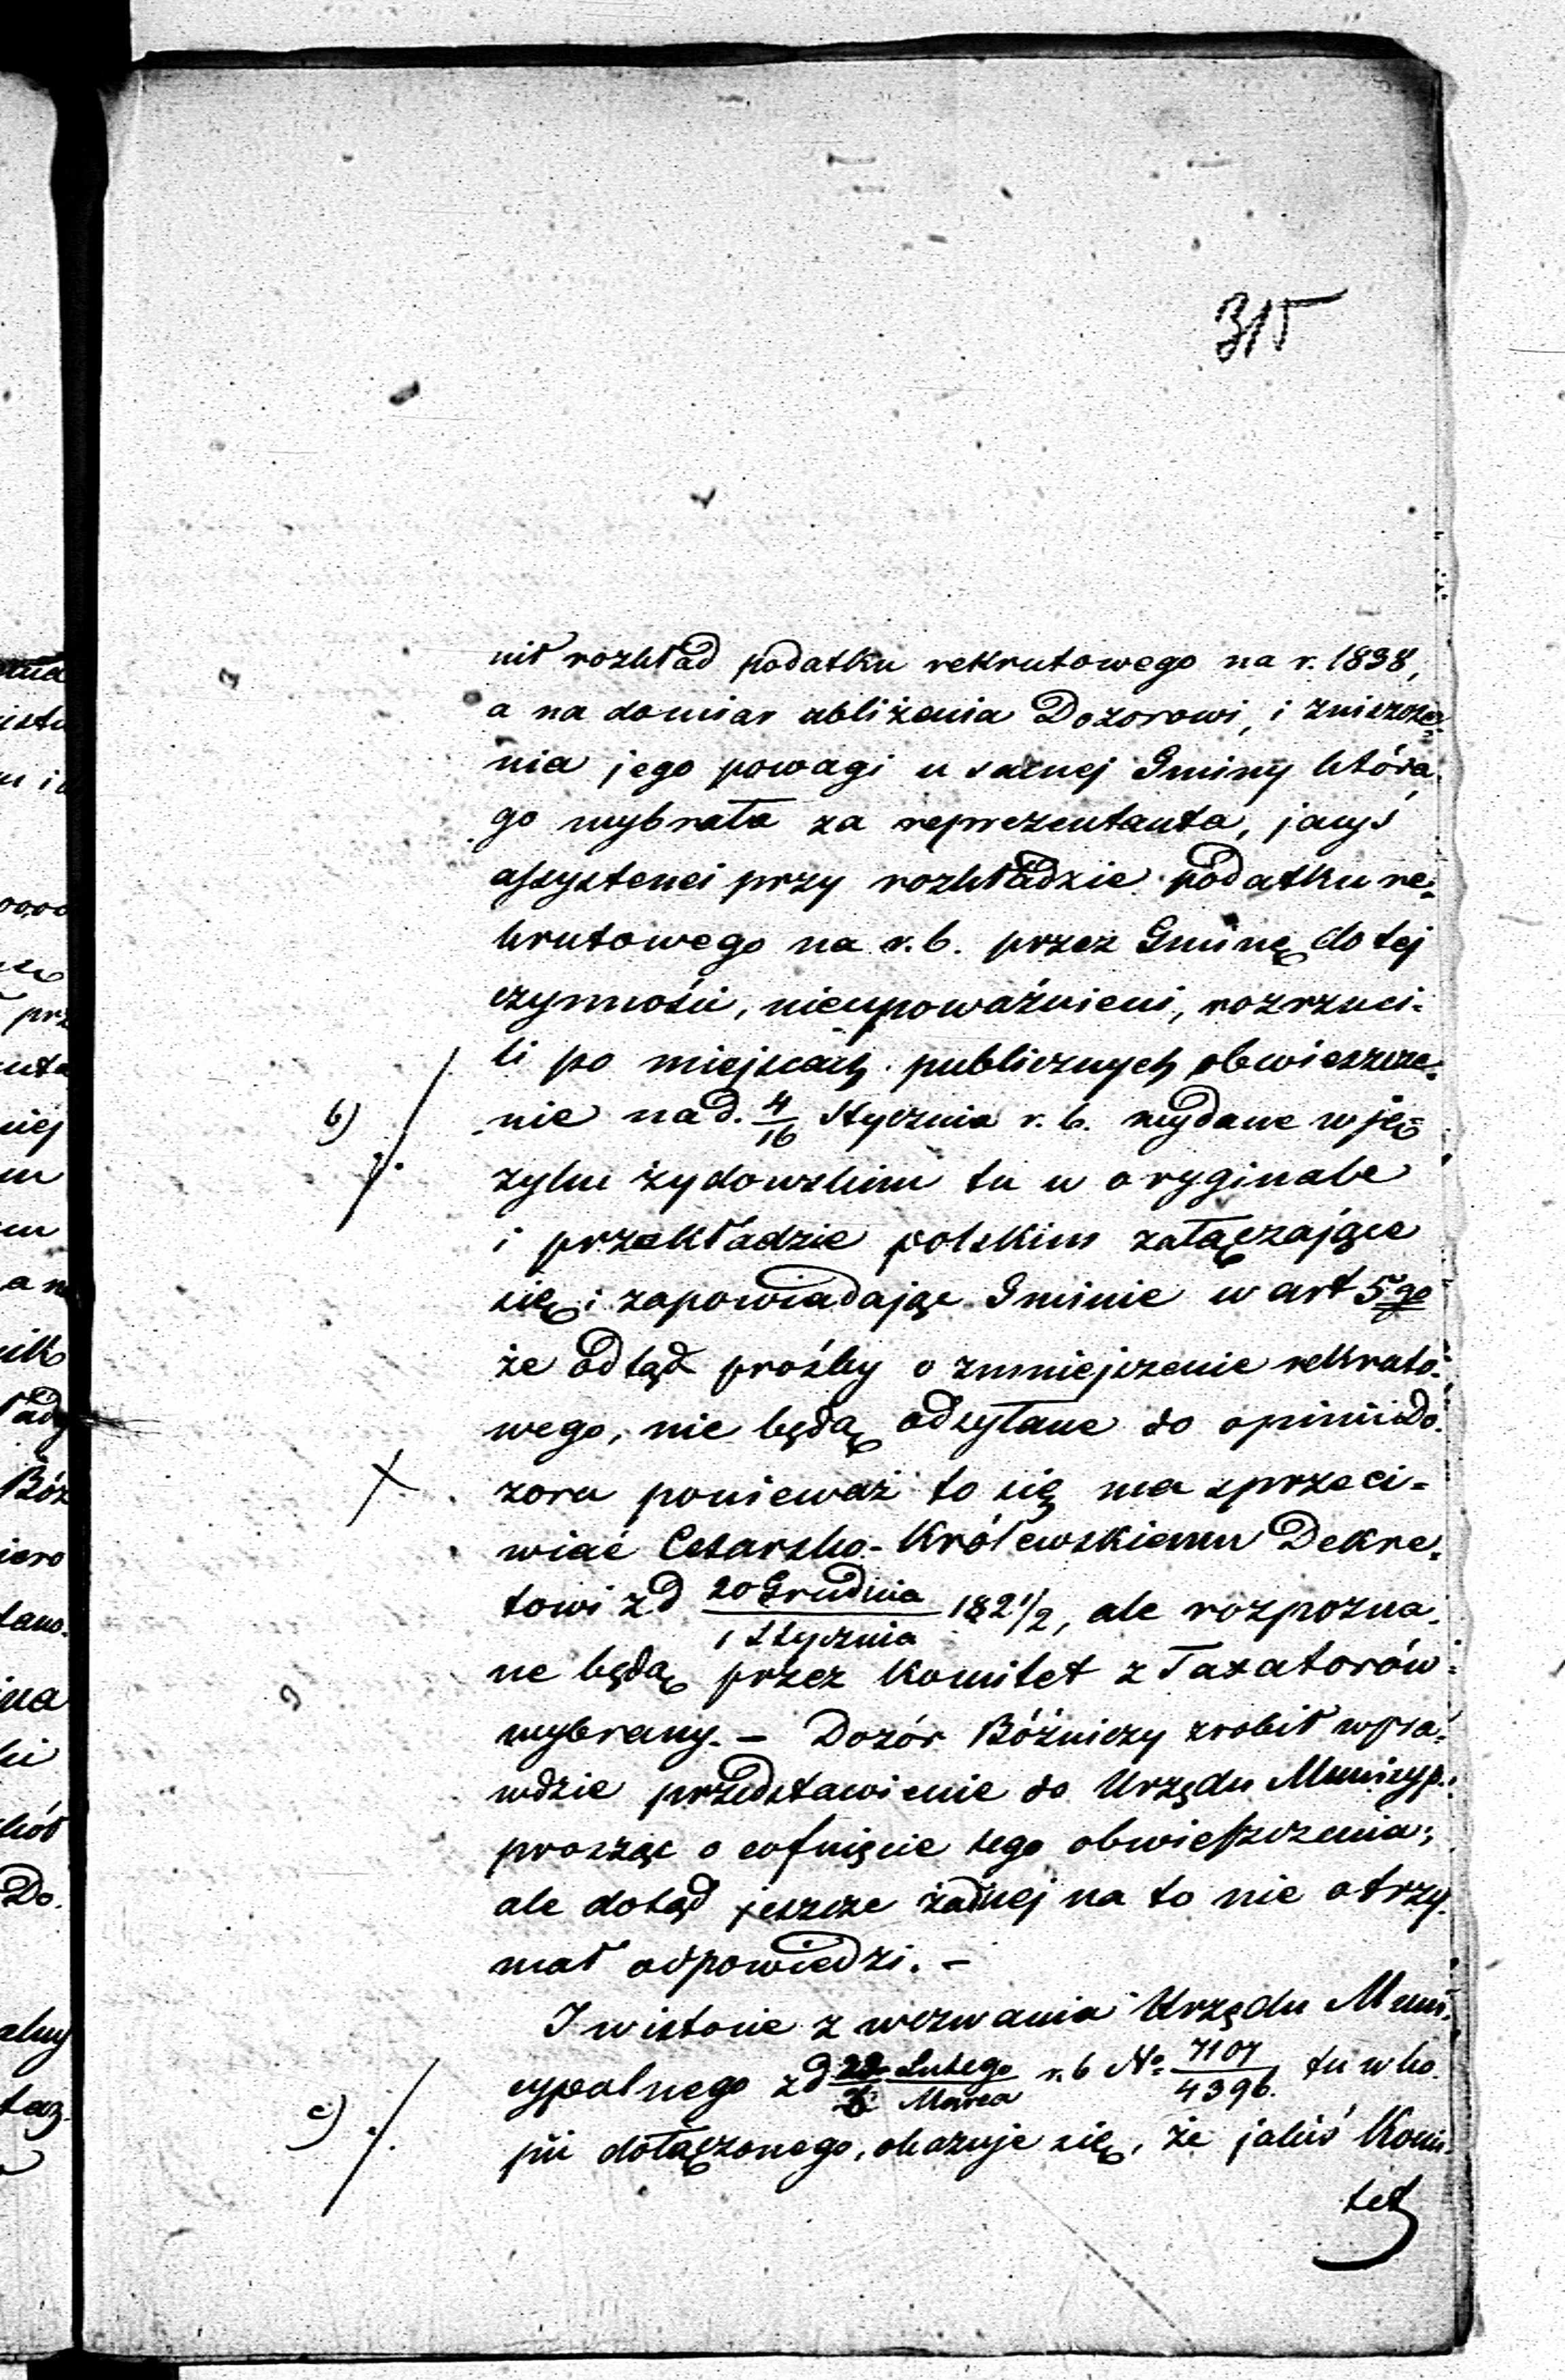 315
nił rozkład podatku rekrutowego na r. 1838,
a na domiar ubliżenia Dozorowi, i zniszcze-
nia jego powagi u samej Gminy która
go wybrała za reprezentanta, jacyś
assystenci przy rozkładzie podatku re-
krutowego na r. b. przez Gminę do tej
czynności, nieupoważnieni, rozrzuci-
li po miejscach publicznych obwieszcze-
b) ./. nie na d. 4/16 Stycznia r. b. wydane w ję-
zyku żydowskim tu w oryginale
i przekładzie polskim załączające
się i zapowiadając Gminie w art 5go
że odtąd prośby o zmniejszenie rekruto-
wego, nie będą odsyłane do opinii Do-
zoru ponieważ to się ma sprzeci-
wiać Cesarsko-Królewskiemu Dekre-
towi z d 20 Grudnia/1 Stycznia 182 1/2, ale rozpozna-
ne będą przez Komitet z Taxatorów
wybrany. – Dozór Bóźniczy zrobił wpra-
wdzie przedstawienie do Urzędu Municyp.
prosząc o cofnięcie tego obwieszczenia,
ale dotąd jeszcze żadnej na to nie otrzy-
mał odpowiedzi. –
I w istocie z wezwania Urzędu Muni-
cypalnego z d Lutego/Marca r. b No 7107/4396. tu w ko-
c) ./. pii dołączonego, okazuje się, że jakiś Komi-
tet